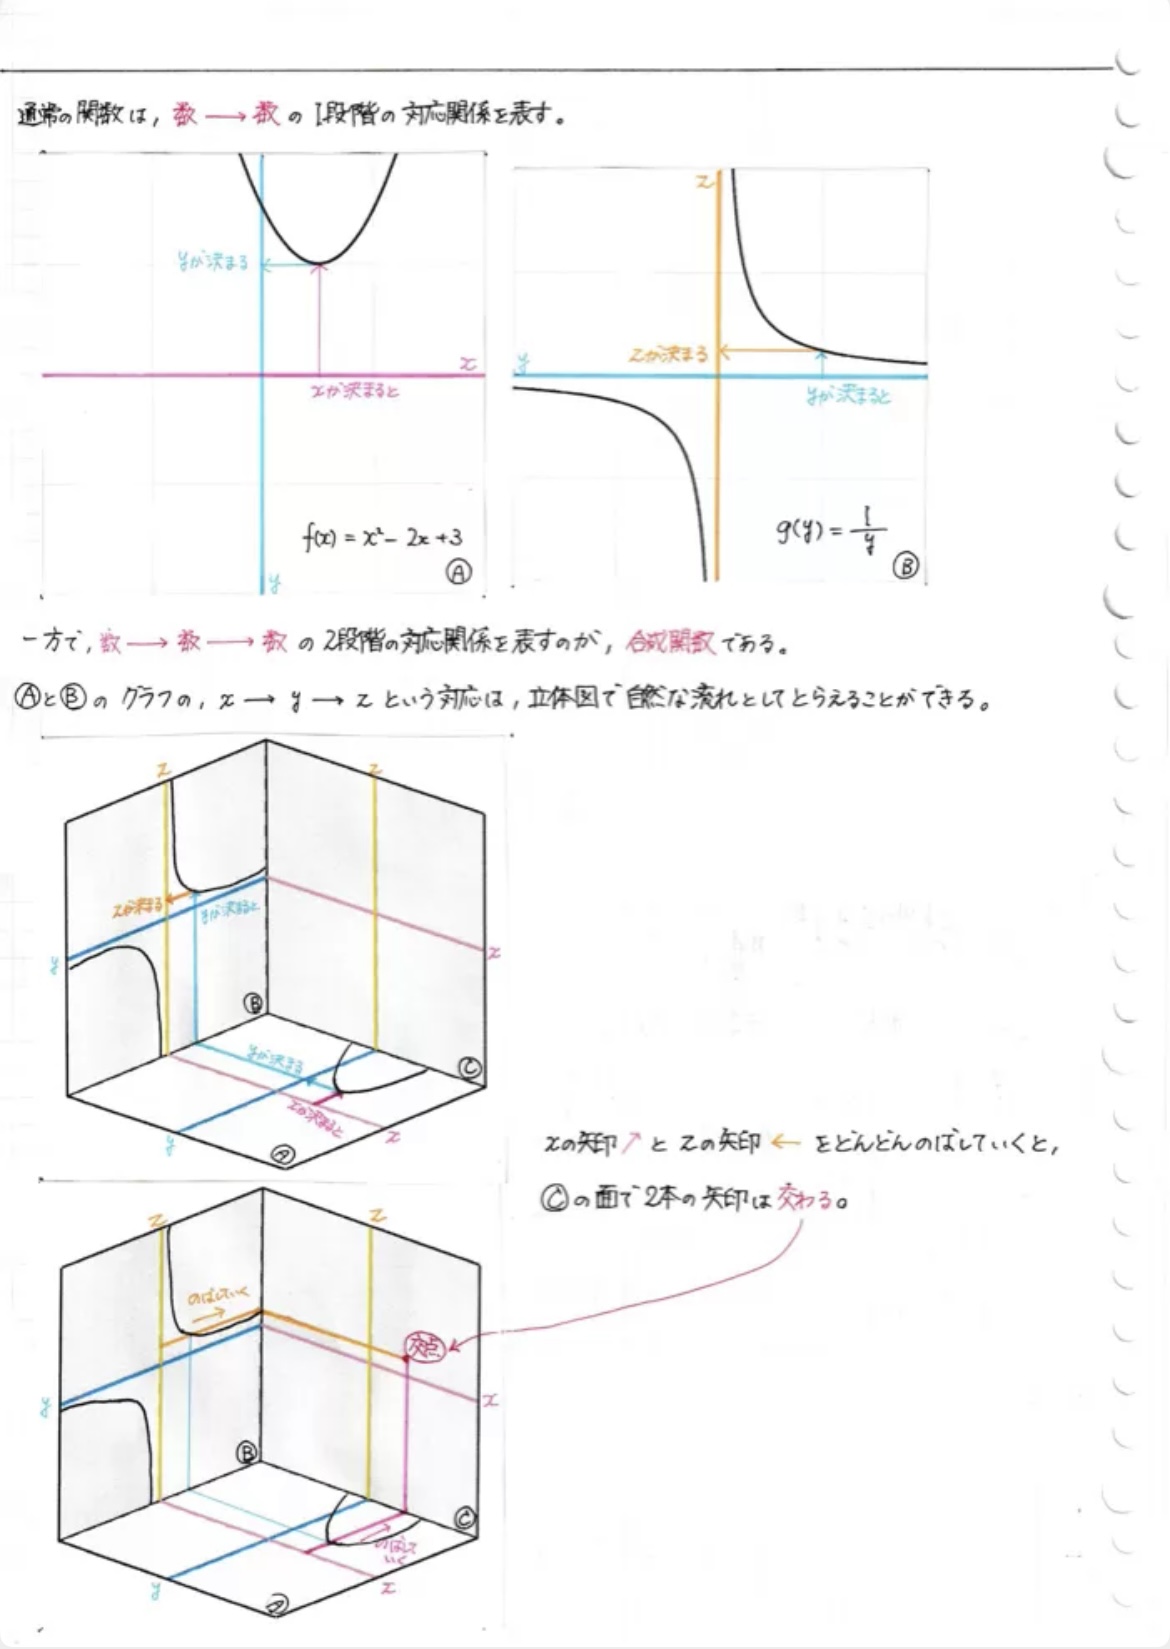 通常の関数は, 数 → 数 の 1段階の 対応関係を表す。
yが決まる
x
xが決まると
f(x) = x² - 2x + 3
Ⓐ
y
z
zが決まる
y
yが決まると
g(y) = 1/y
Ⓑ
一方で, 数 → 数 → 数 の 2段階の対応関係を表すのが, 合成関数である。
ⒶとⒷの グラフの, x → y → z という対応は, 立体図で自然な流れとしてとらえることができる。
z
z
zが決まる
yが決まると
y
x
Ⓑ
yが決まる
Ⓒ
xが決まると
y
x
Ⓐ
xの矢印↗と zの矢印 ← をどんどんのばしていくと,
Ⓒの面で2本の矢印は交わる。
z
z
のばしていく
→
交点
y
x
Ⓑ
Ⓒ
のばして
いく
y
x
Ⓐ